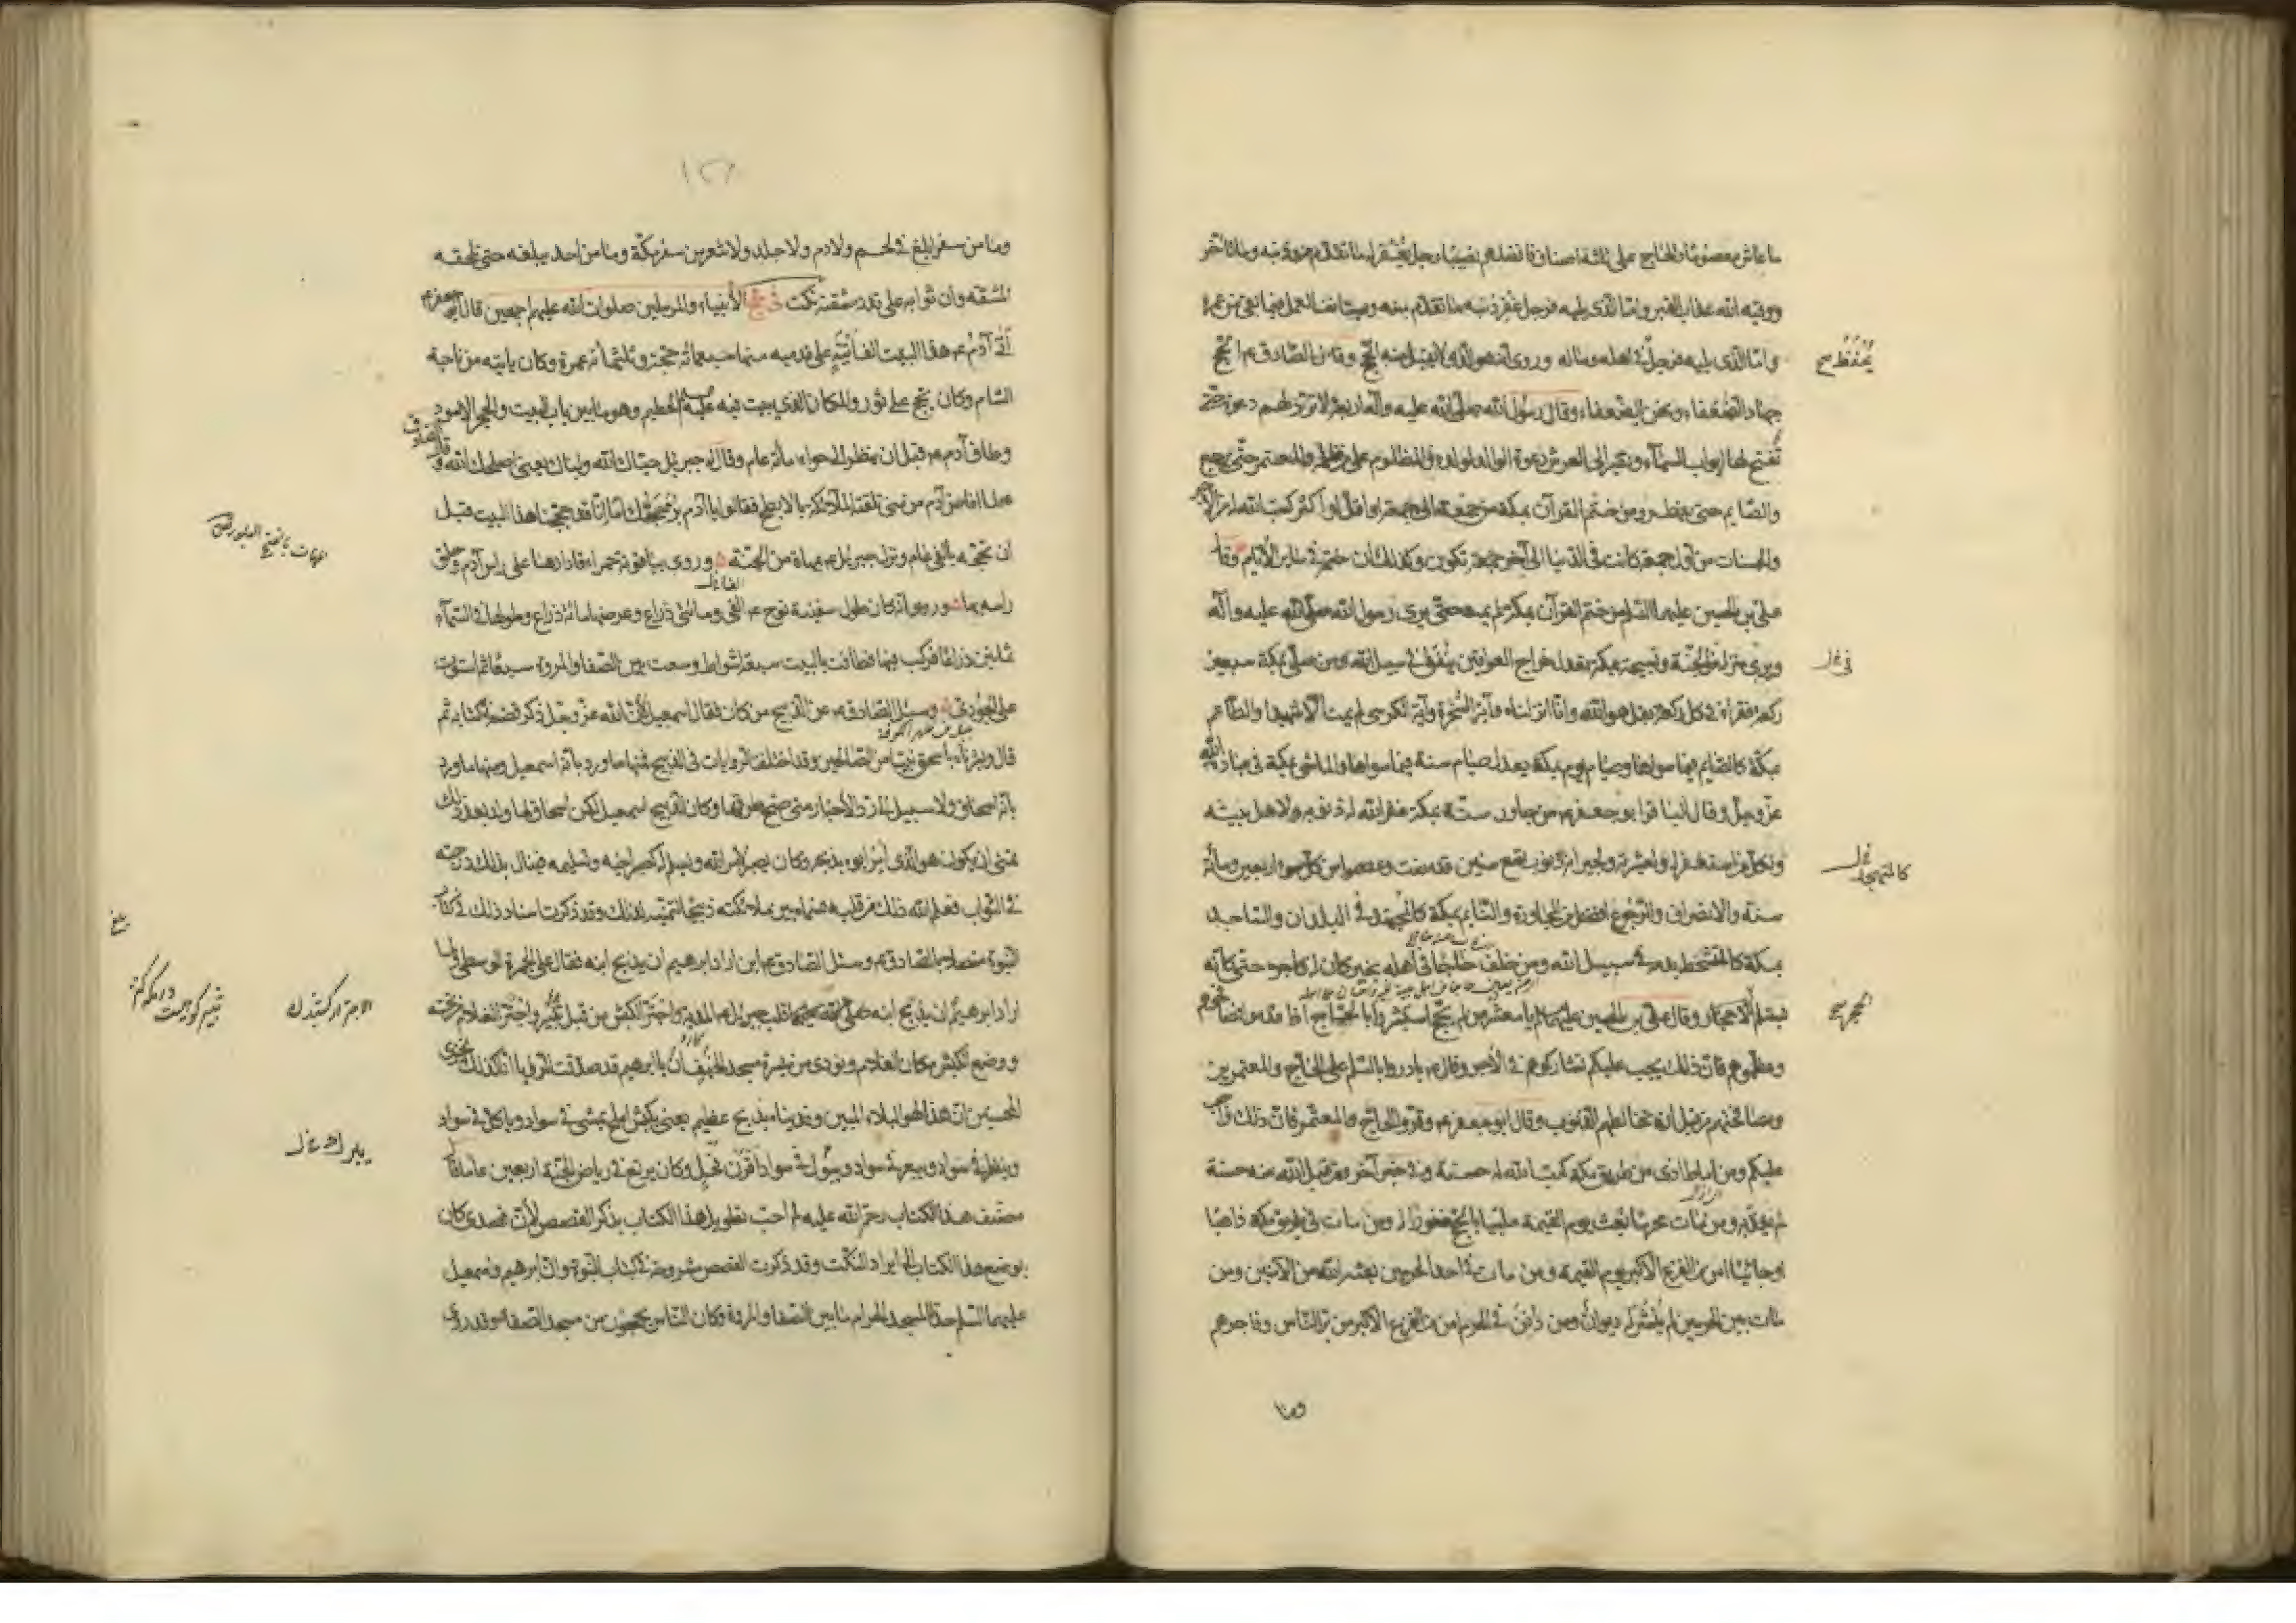 ما عاش معصوما والحاج على ثلثة اصناف فافضلهم نصيبا رجل يغفر له ما تقدم من ذنبه وما تاخر
ووقيه الله عذاب القبر واما الذى يليه فرجل غفر ذنبه ما تقدم منه ويستانف العمل فيما بقى من عمره
واما الذى يليه فرجل فى اهله وماله وروى انه هو الذى لا يقبل منه الحج وقال الصادق ع الحج
جهاد الضعفاء ونحن الضعفاء وقال رسول الله صلى الله عليه وآله اربعة لا ترد لهم دعوة حتى
تفتح لها ابواب السمآء وتصير الى العرش دعوة الوالد لولده والمظلوم على من ظلمه والمعتمر حتى يرجع
والصايم حتى يفطر ومن ختم القرآن بمكة من جمعة الى جمعة او اقل او اكثر كتب الله له من الاجر
والحسنات من اول جمعة كانت فى الدنيا الى آخر جمعة تكون وكذلك ان ختم فى ساير الايام وقال
على بن الحسين عليهما السلام من ختم القرآن بمكة لم يمت حتى يرى رسول الله صلى الله عليه وآله
ويرى منزله فى الجنة وتسبيحة بمكة تعدل خراج العراقين ينفق فى سبيل الله ومن صلى بمكة سبعين
ركعة فقرا فى كل ركعة بقل هو الله وانا انزلناه وآية السخرة وآية الكرسى لم يمت الا شهيدا والطاعم
بمكة كالصايم فيما سواها وصيام يوم بمكة يعدل صيام سنة فيما سواها والماشى بمكة فى عبادة الله
عز وجل وقال الباقر ابو جعفر ع من جاور سنة بمكة غفر الله له ذنوبه ولاهل بيته
ولكل من استغفر له ولعشيرته ولجيرانه ذنوب تسع سنين قد مضت وعصموا من كل سوء اربعين ومائة
سنة والانصراف والرجوع افضل من المجاورة والنايم بمكة كالمجتهد فى البلدان والساجد
بمكة كالمتشحط بدمه فى سبيل الله ومن خلف حاجا فى اهله بخير كان له كاجره حتى كانه
يستلم الاحجار وقال على بن الحسين عليهما السلام يا معشر من لم يحج استبشروا بالحاج اذا قدموا فصافحوهم
وعظموهم فان ذلك يجب عليكم تشاركوهم فى الاجر وقال ع بادروا بالسلام على الحاج والمعتمرين
ومصافحتهم من قبل ان تخالطهم الذنوب وقال ابو جعفر ع وقروا الحاج والمعتمر فان ذلك واجب
عليكم ومن اماط اذى من طريق مكة كتب الله له حسنة وفى خبر آخر ومن قبل الله منه حسنة
لم يعذبه ومن مات محرما بعث يوم القيمة ملبيا بالحج مغفورا له ومن مات فى طريق مكة ذاهبا
او جائيا امن من الفزع الاكبر يوم القيمة ومن مات فى احد الحرمين بعثه الله من الآمنين ومن
مات بين الحرمين لم ينشر له ديوان ومن دفن فى الحرم امن من الفزع الاكبر من بر الناس وفاجرهم
وما
كالمتهجد خل
١٢٨
وما من سفر ابلغ فى لحم ولا دم ولا جلد ولا شعر من سفر مكة وما من احد يبلغه حتى تلحقه
المشقة وان ثوابه على قدر مشقته نكت فى حج الأنبياء والمرسلين صلوات الله عليهم اجمعين قال ابو جعفر ع
اتى آدم ع هذا البيت الف اتية على قدميه منها سبعمائة حجة وثلثمائة عمرة وكان ياتيه من ناحية
الشام وكان يحج على ثور والمكان الذى يبيت فيه عليه السلام الحطيم وهو ما بين باب البيت والحجر الاسود
وطاف آدم ع قبل ان ينظر الى حواء مائة عام وقال له جبريل حياك الله ولباك يعنى اصلحك الله وقال الصادق ع
لما افاض آدم من منى تلقته الملآئكة بالابطح فقالوا يا آدم بر حجك اما انا قد حججنا هذا البيت قبل
ان تحجه بالفى عام ونزل جبريل ع بمهاة من الجنة وروى بياقوتة حمراء فادارها على راس آدم وحلق
راسه بها وروى انه كان طول سفينة نوح ع الفى ومائتى ذراع وعرضها مائة ذراع وطولها فى السمآء
ثمانين ذراعا فركب فيها فطافت بالبيت سبعة اشواط وسعت بين الصفا والمروة سبعا ثم استوت
على الجودى وسئل الصادق ع عن الذبيح من كان فقال اسمعيل لان الله عز وجل ذكر قصته فى كتابه ثم
قال وبشرناه باسحق نبيا من الصالحين وقد اختلفت الروايات فى الذبيح فمنها ما ورد بانه اسمعيل ومنها ما ورد
بانه اسحاق ولا سبيل الى رد الاخبار متى صح طرقها وكان الذبيح اسمعيل لكن اسحاق لما ولد بعد ذلك
تمنى ان يكون هو الذى امر ابوه بذبحه وكان يصبر لامر الله ويسلم له كصبر اخيه وتسليمه فينال بذلك درجته
فى الثواب فعلم الله ذلك من قلبه فسماه بين ملائكته ذبيحا لتمنيه لذلك وقد ذكرت اسناد ذلك فى كتاب
النبوة متصلا بالصادق ع وسئل الصادق ع اين اراد ابرهيم ان يذبح ابنه فقال على الجمرة الوسطى ولما
اراد ابرهيم ان يذبح ابنه صلى الله عليهما قلب جبريل ع المدية واجتر الكبش من قبل ثبير واجتر الغلام من تحته
ووضع الكبش مكان الغلام ونودى من ميسرة مسجد الخيف ان يا ابرهيم قد صدقت الرؤيا انا كذلك نجزى
المحسنين ان هذا لهو البلاء المبين وفديناه بذبح عظيم يعنى بكبش املح يمشى فى سواد وياكل فى سواد
وينظر فى سواد ويبعر فى سواد ويبول فى سواد اقرن فحل وكان يرتع فى رياض الجنة اربعين عاما قال
مصنف هذا الكتاب رحمة الله عليه لم احب تطويل هذا الكتاب بذكر القصص لأن قصدى كان
بوضع هذا الكتاب الى ايراد النكت وقد ذكرت القصص مشروحة فى كتاب النبوة وان ابرهيم واسمعيل
عليهما السلام حدا المسجد الحرام ما بين الصفا والمروة وكان الناس يحجون من مسجد الصفا وقد روى